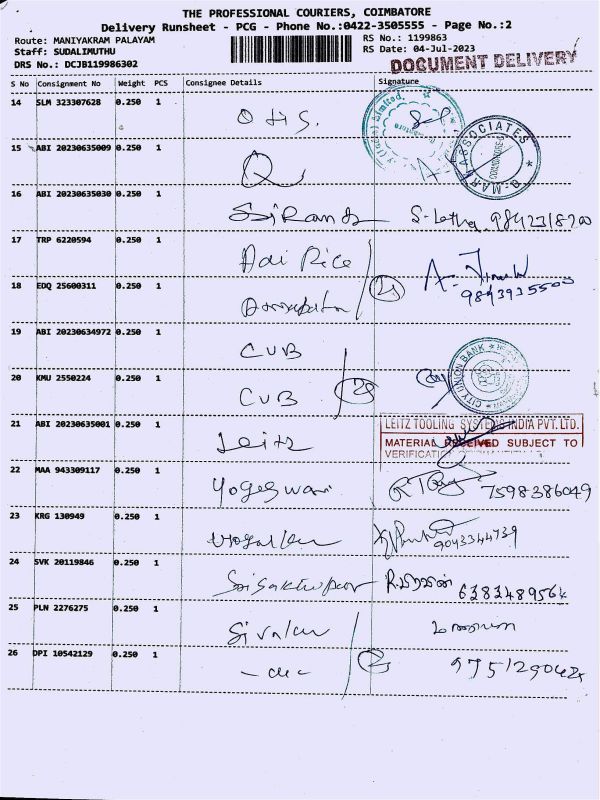 THE PROFESSIONAL COURIERS, COIMBATORE
Delivery Runsheet - PCG - Phone No.:0422-3505555 - Page No.:2
Route: MANIYAKRAM PALAYAM
RS No.: 1199863
Staff: SUDALIMUTHU
RS Date: 04-Jul-2023
DRS No.: DCJB119986302
DOCUMENT DELIVERY
S No Consignment No Weight PCS Consignee Details Signature
14 SLM 323307628 0.250 1 Otis.
15 ABI 20230635009 0.250 1
ASSOCIATES
16 ABI 20230635030 0.250 1 S-Latha 9842318200
17 TRP 6220594 0.250 1 Adi Rice
18 EDQ 25600311 0.250 1 9843935500
19 ABI 20230634972 0.250 1 CUB
CITY UNION BANK
20 KMU 2550224 0.250 1 CUB
21 ABI 20230635001 0.250 1 Leitz
LEITZ TOOLING SYSTEMS INDIA PVT. LTD.
MATERIAL RECEIVED SUBJECT TO
VERIFICATION
22 MAA 943309117 0.250 1 Yogeswari 7598386049
23 KRG 130949 0.250 1 9043344739
24 SVK 20119846 0.250 1 6383489564
25 PLN 2276275 0.250 1
26 DPI 10542129 0.250 1